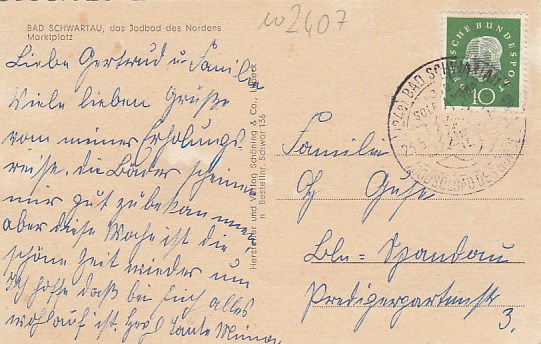 w2407
BAD SCHWARTAU, das Jodbad des Nordens
Marktplatz
Liebe Gertrud u. Familie
Viele lieben Grüße
von meiner Erholungs.
reise. Die Bäder scheinen
mir gut zu bekommen,
aber diese Woche ist die
schöne Zeit wieder um
Ich hoffe daß bei Euch alles
wohlauf ist. Herzl Tante Minna
Hersteller und Verlag Schöning & Co., Lübeck
Bestellnr. Schwar 136
DEUTSCHE BUNDESPOST
10
(24b) BAD SCHWARTAU
Familie
Guse
Bln = Spandau
Predigergartenstr
3.